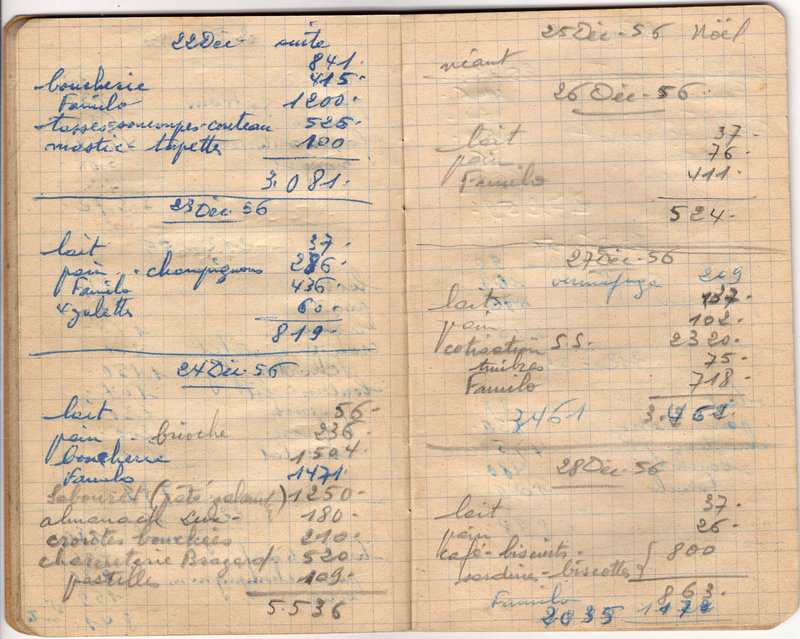 22 Déc - suite
841.
boucherie 415.
Familo 1200.
tasses-soucoupes-couteau 525.
mastic - tapette 100
3.081.
23 Déc. 56
lait 37.
pain - champignons 286.
Familo 436.
4 galettes 60.
819.
24 Déc. 56
lait 56-
pain brioche 236.
boucherie 1504.
Familo 1471.
Sabouret (pâté ) 1250.
almanach Lux - 180.
croûtes bouchées 210.
charcuterie 520
pastilles 109.
5.536
25 Déc. 56 Nöel
néant
26 Déc. 56.
lait 37.
pain 76.
Familo 411.
524.
27 Déc. 56
vermifuge 209
lait 37.
pain 102.
cotisation S.S. 2320.
timbres 75.
Familo 718.
3461 3.461.
28 Déc. 56
lait 37.
pain 26.
café - biscuits - 800
sardines - biscottes
863.
Familo
2035